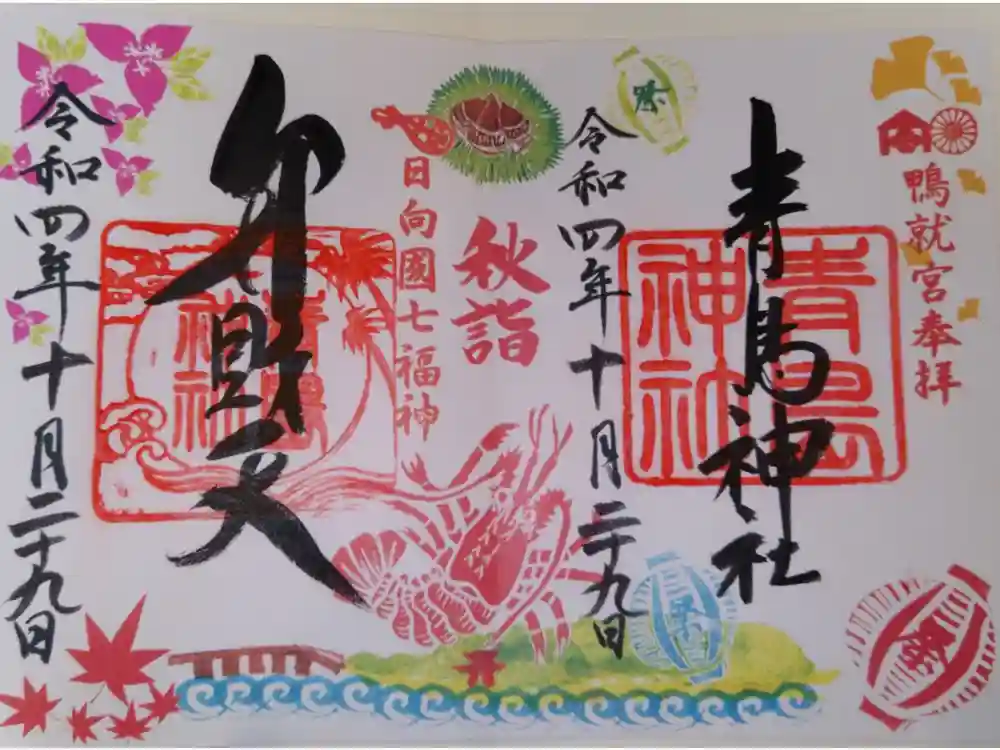 鴨就宮奉拝
青島神社
青島
神社
令和四年十月二十九日
祭
祭
祭
秋詣
日向國七福神
弁財天
青島
神社
令和四年十月二十九日